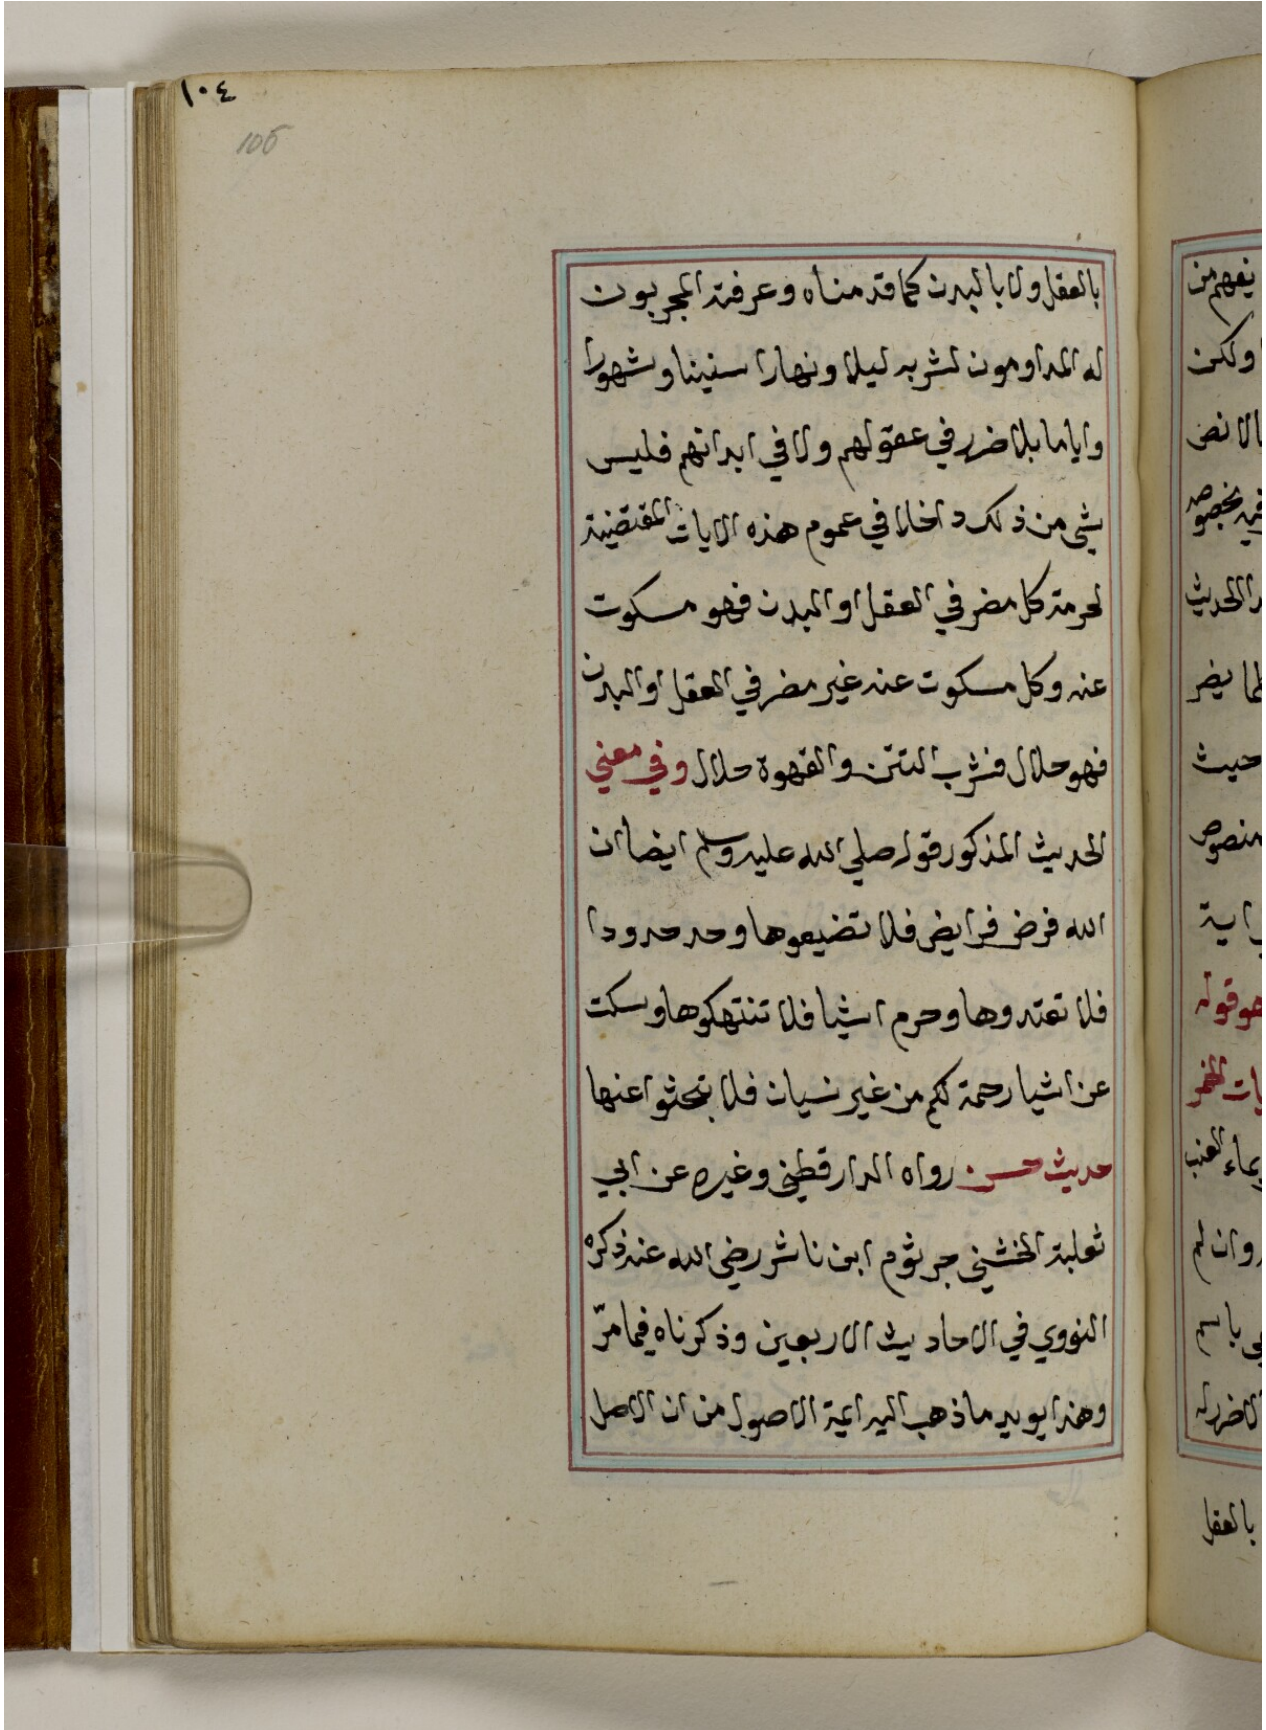 ١٠٤
105
بالعقل ولا بالبدن كما قدمناه وعرفته المجربون
له المداومون لشربه ليلا ونهارا سنينا وشهورا
واياما بلا ضرر في عقولهم ولا في ابدانهم فليس
شي من ذلك داخلا في عموم هذه الايات المقتضية
لحرمة كل مضر في العقل او البدن فهو مسكوت
عنه وكل مسكوت عنه غير مضر في العقل او البدن
فهو حلال فشرب التتن والقهوة حلال وفي معني
الحديث المذكور قوله صلي الله عليه وسلم ايضا ان
الله فرض فرايض فلا تضيعوها وحد حدودا
فلا تعتدوها وحرم اشيا فلا تنتهكوها وسكت
عن اشيا رحمة لكم من غير نسيان فلا تبحثوا عنها
حديث حسن رواه الدارقطني وغيره عن ابي
ثعلبة الخشني جرثوم ابن ناشر رضي الله عنه ذكره
النووي في الاحاديث الاربعين وذكرناه فيما مرّ
وهذا يويد ما ذهب اليه ايمة الاصول من ان الاصل
يفهم من
ولكن
نص
بخصوصه
الحديث
يضر
حيث
اية
قوله
الخمر
بماء العنب
وان لم
باسم
بالعقل